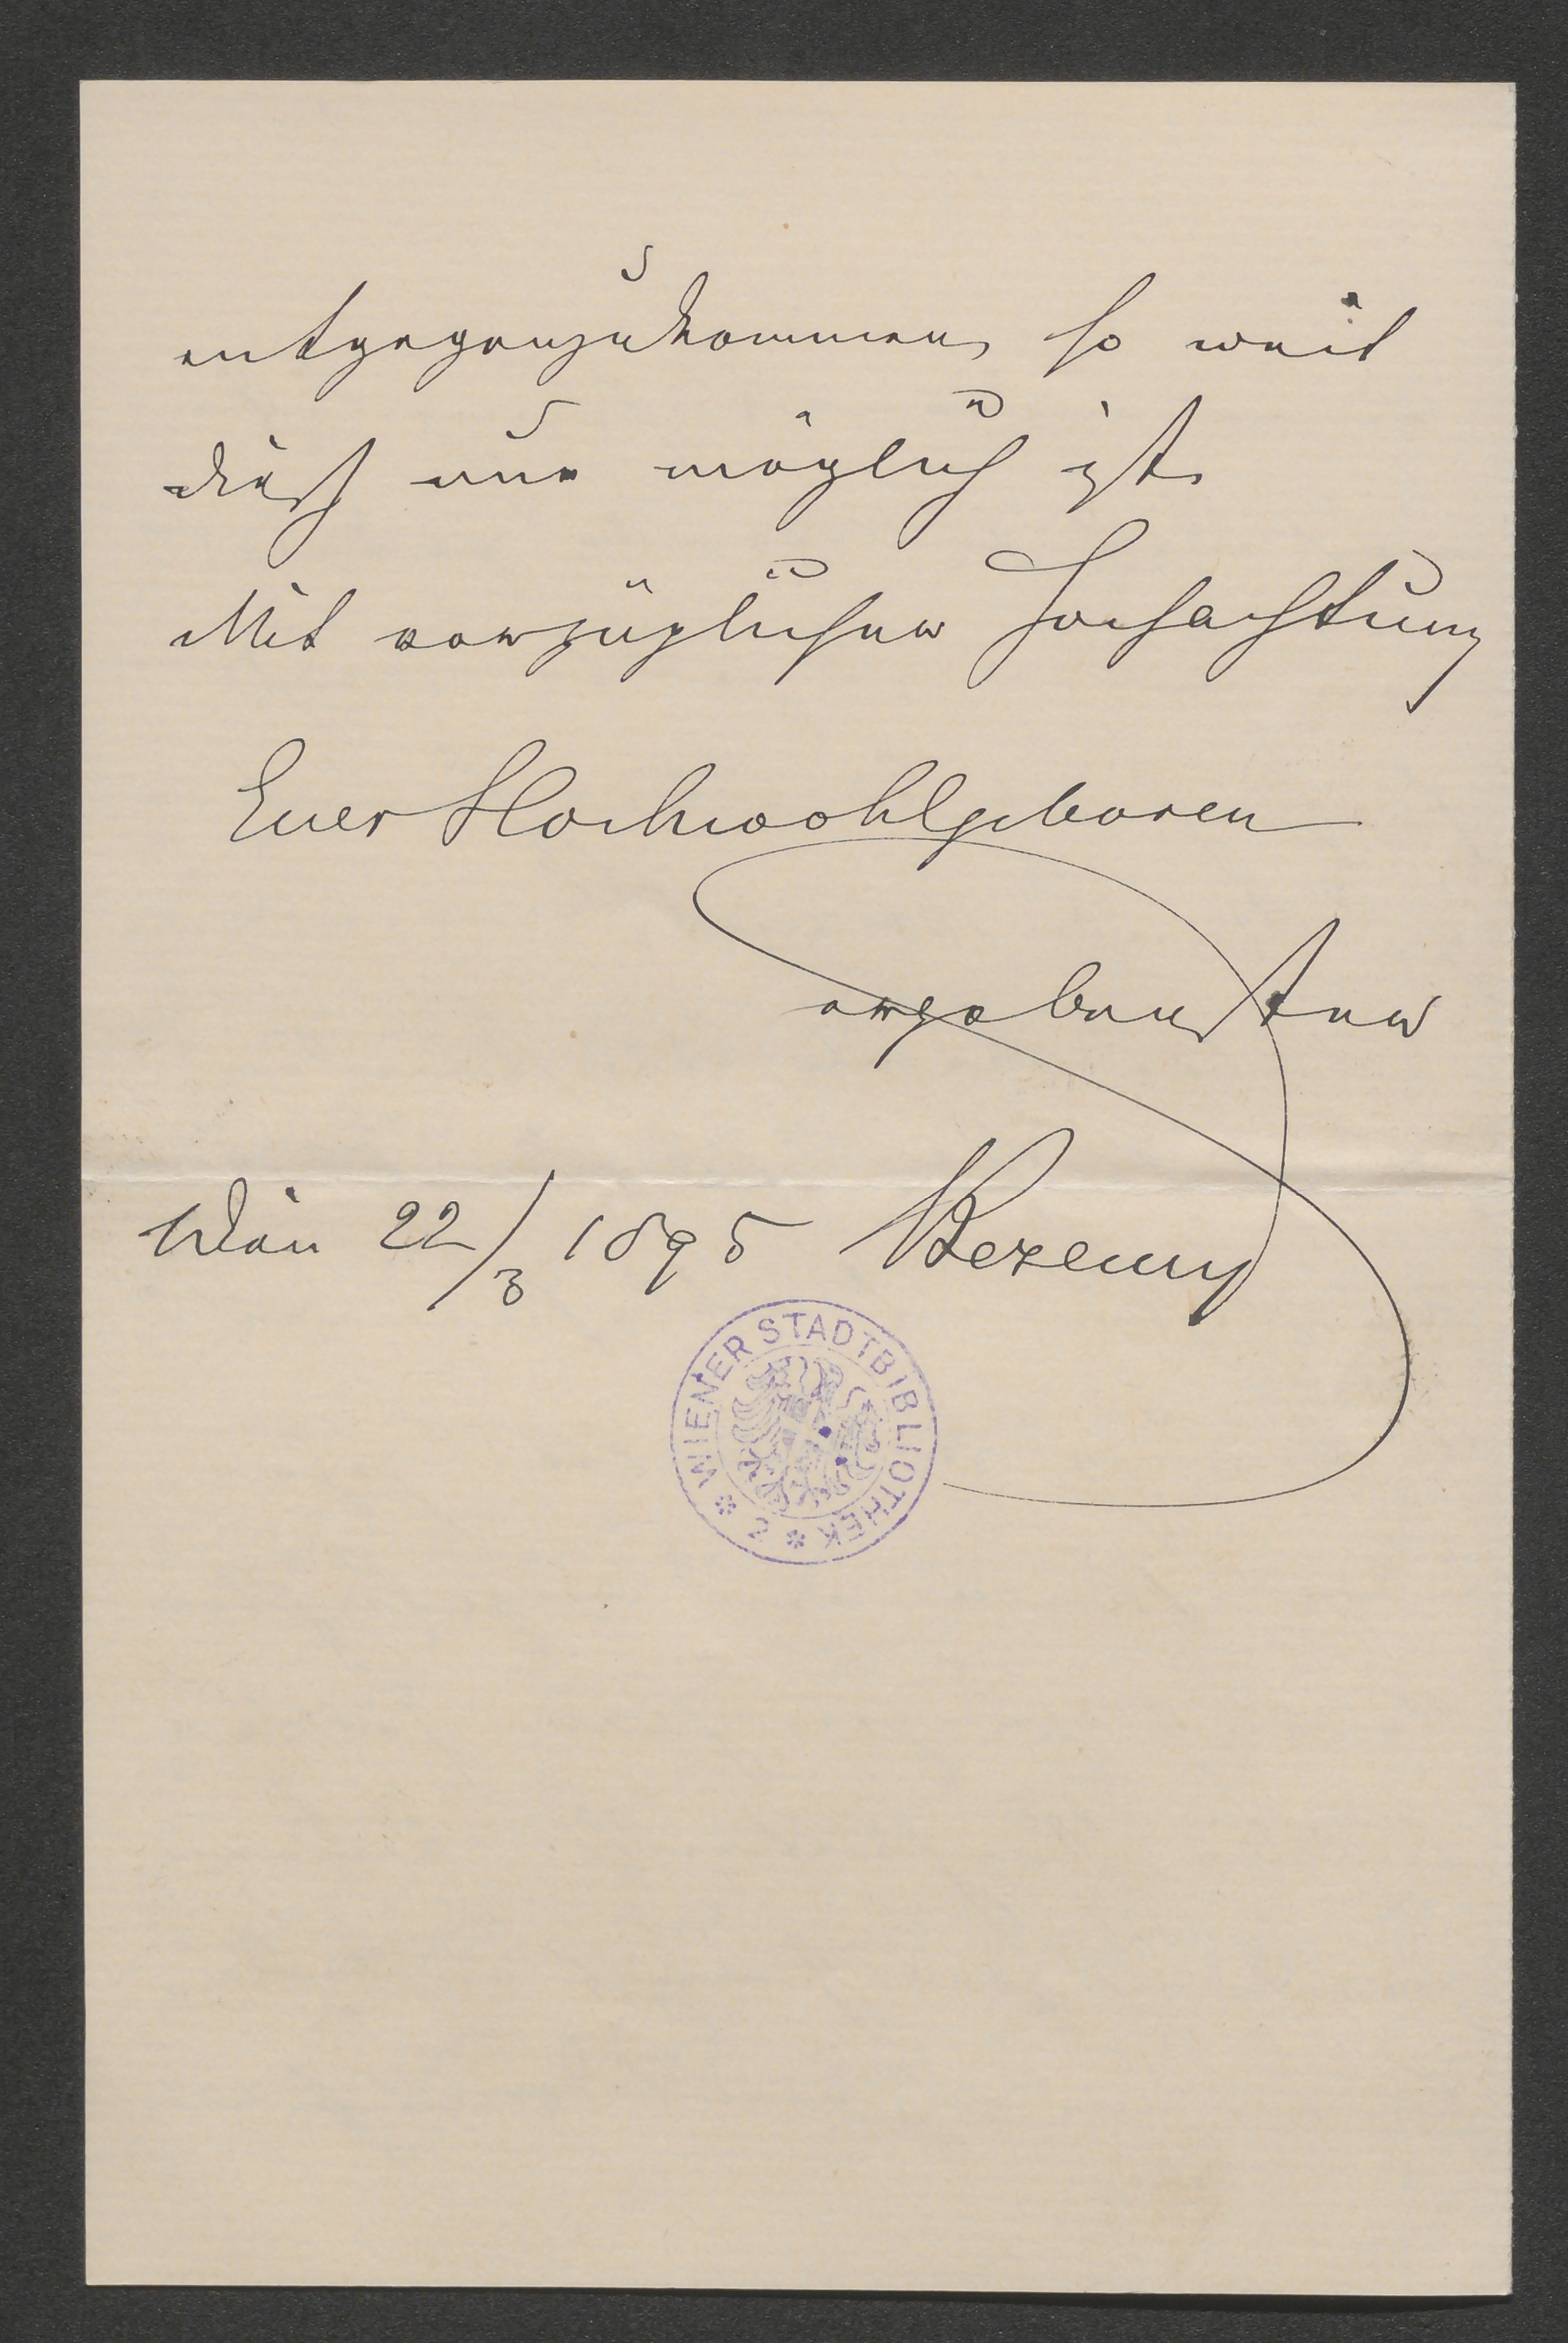 entgegenzukommen so weit
dieß nur möglich ist.
Mit vorzüglicher Hochachtung
Euer Hochwohlgeboren
ergebenster
Wien 22/3 1895 Bezecny
* WIENER STADTBIBLIOTHEK * 2